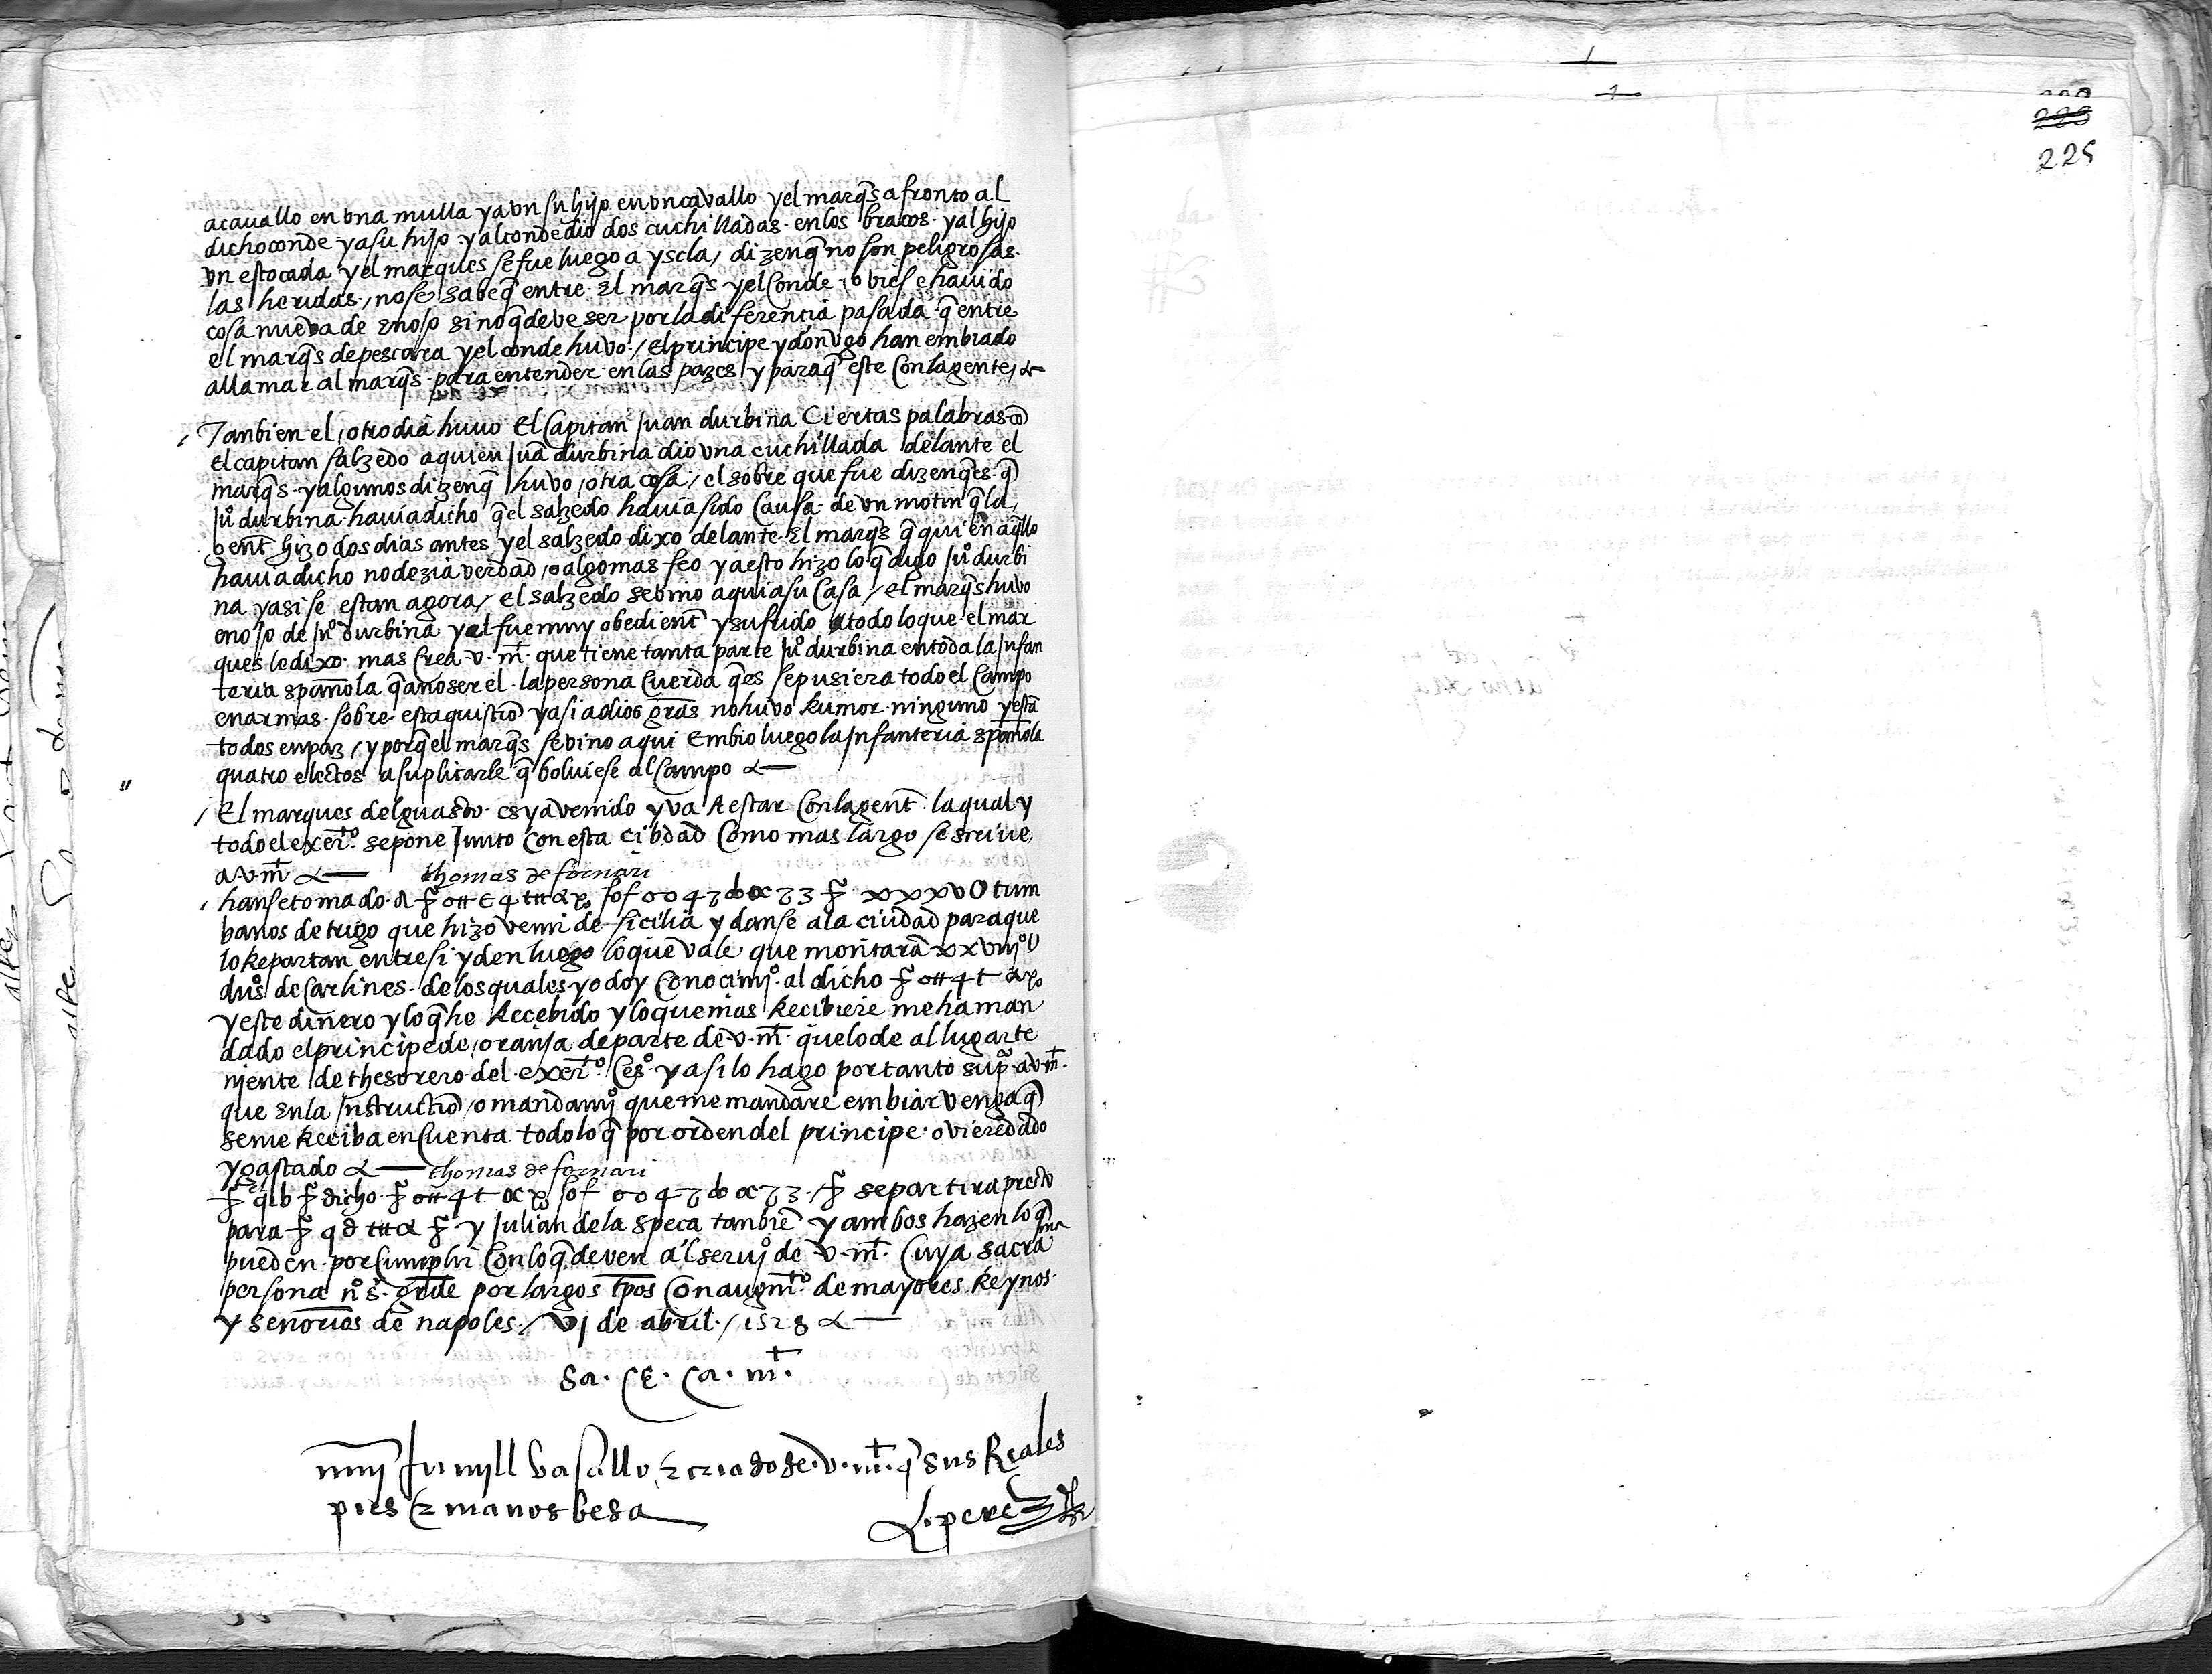 acauallo en vna mulla y a vn su hijo en vn cavallo y el marq̃s afronto al
dicho conde y a su hijo y al conde dio dos cuchilladas en los braços y al hijo
vn estocada y el marques se fue luego a yscla / dizen q̃ no son peligrosas
las heridas / no se sabe q̃ entre El marq̃s y el Conde obiese hauido
cosa nueva de Enojo sino q̃ deve ser por la diferencia pasada q̃ entre
el marq̃s de pescara y el conde huvo / El principe y don vgo han embiado
a llamar al marq̃s para entender en las pazes / y paraq̃ este con la gente
Tanbien el otro dia huuo El Capitan Juan durbina Ciertas palabras cõ
el capitan salzedo a quien Juã durbina dio vna cuchillada delante el
marq̃s y algunos dizen q̃ huvo otra cosa / el sobre que fue dizen q̃ es q̃
Juº durbina hauia dicho q̃ el salzedo hauia sido Causa de vn motin q̃ la
gent hizo dos dias antes y el salzedo dixo delante El marq̃s q̃ quien aq̃llo
hauia dicho no dezia verdad o algo mas feo y a esto hizo lo q̃ digo Juº durbi
na y asi se estan agora / el salzedo se vino aqui a su Casa / el marq̃s huvo
enojo de Juº durbina y el fue muy obedient y sufrido a todo lo que el mar
ques le dixo mas Crea v. mt. que tiene tanta parte Juº durbina en toda la Infan
teria spañola q̃ a no ser el la persona Cuerda q̃ es se pusiera todo el Campo
en armas sobre esta quistiõ y asi a dios gr̃as no huvo Rumor ninguno y estã
todos en paz / y porq̃ el marq̃s se vino aqui Embio luego la Infanteria spañola
quatro electos a suplicarle q̃ bolviese al Campo
El marques del guasto es ya venido y va A estar Con la gent la qual y
todo el exerto se pone Junto Con esta Cibdad Como mas largo se screive
a v. mt
thomas de fornari
hanse tomado xxxv U tum
banos de trigo que hizo venir de sicilia y danse a la ciudad para que
lo Repartan entre si y den luego lo que vale que montarã
duºs de Carlines de los quales yo doy Conocimjº al dicho
y este dinero y lo q̃ he Recebido y lo que mas Recibiere me ha man
dado el principe de oranja de parte de v. mt. que lo de al lugarte
njente de thesorero del exerto Cesº y asi lo hago por tanto sup.co a v. mt.
que En la Instructiõ o mandamjº que me mandare embiar venga q̃
se me Reciba en Cuenta todo lo q̃ por orden del principe oviere dado
y gastado
thomas de fornari
dicho se partira presto
para y Julian de la speca tambiẽ y ambos hazen lo q̃
pueden por Cumplir Con lo q̃ deven al servjº de v. mt. Cuya sacrama
persona nº sr. grde por largos tpos Con augmto de mayores Reynos
y señorios de napoles / vj de abril / 1528
Sa. Ce. Ca. mt.
muy humyll vasallo e criado de v. mt. q̃ sus Reales
pies e manos besa
L. perez
225